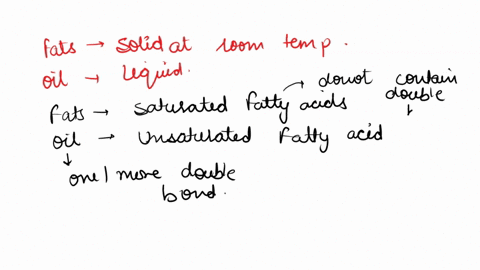 fats → solid at room temp.
oil → liquid.
fats → saturated fatty acids → donot contain double
oil → unsaturated fatty acid
one/more double bond.